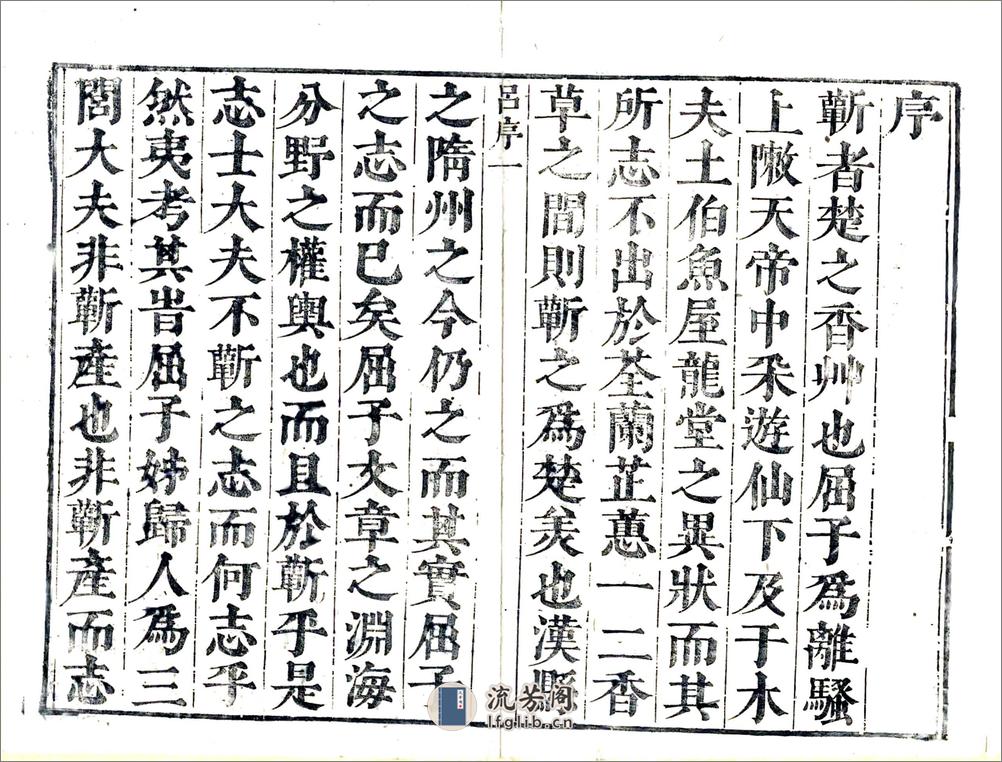 序
蘄者楚之香艸也屈子爲離騷
上天帝中采遊仙下及于木
夫土伯魚屋龍堂之異狀而其
所志不出於荃蘭芷蕙一二香
草之間則蘄之爲楚矣也漢縣
呂序一
之隋州之今仍之而其實屈子
之志而已矣屈子文章之淵海
分野之權輿也而且於蘄乎是
志士大夫不蘄之志而何志乎
然夷考其旹屈子姊歸人爲三
閭大夫非蘄產也非蘄產而志
流芳阁
lfglib.cn